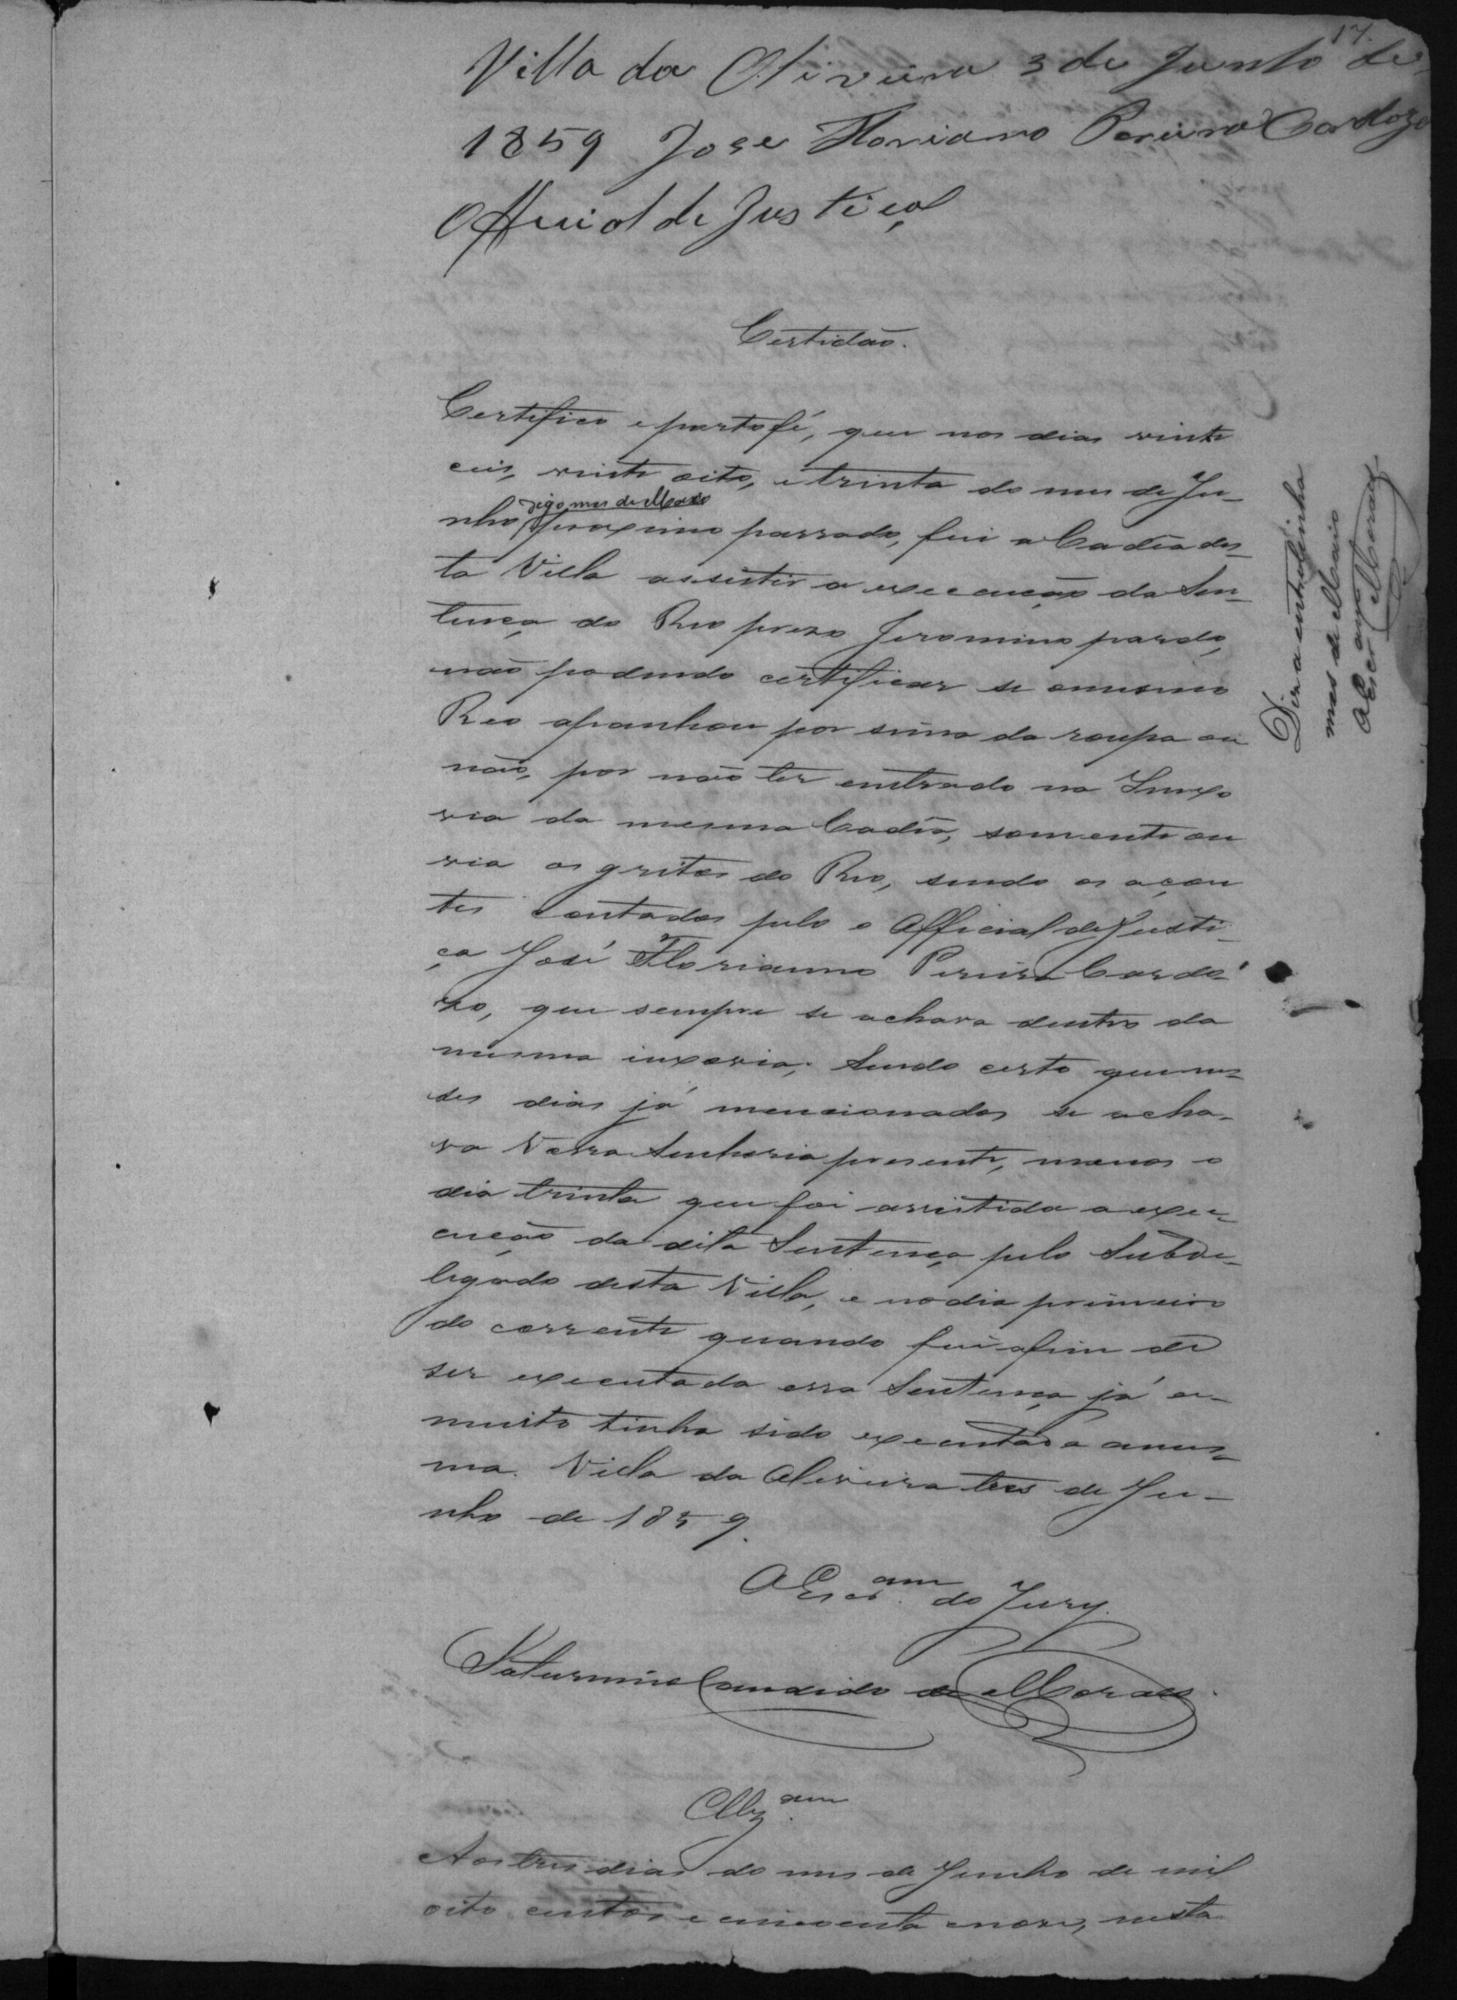 17.
Villa da Oliveira 3 de Junho de
1859 Jose Floriano Pereira Cardozo
Official de Justiça
Certidão.
Certifico e porto fé, que nos dias vinte
ceis, vinte oito, e trinta do mes de Ju-
digo mes de Maio
nho, proximo passado, fui a Cadea des-
ta Villa assistir a execucção da Sen-
tença do Reo prezo Jeronimo pardo,
não podendo certificar se omesmo
Reo apanhou por sima da roupa ou
não, por não ter entrado na Inxo
via da mesma Cadêa, somente ou
via os gritos do Reo, sendo os açou
tes contados pelo o Official de Justi-
ça José Florianno Pereira Cardo-
zo, que sempre se achava dentro da
mesma inxovia; sendo certo que nes-
ses dias já mencionados se acha-
va Vossa Senhoria presente, menos o
dia trinta que foi assistida a exe-
cucção da dita Sentença pelo Subde-
legado desta Villa, e no dia primeiro
do corrente quando fui afim de
ser executada essa Sentença já a
muito tinha sido executada a mes-
ma. Villa da Oliveira tres de Ju-
nho de 1859.
O Escr.am do Jury.
Saturnino Candido de Moraes.
Diz a entrelinha
mes de Maio
O Escr.am Moraes
Aos tres dias do mes de Junho de mil
oito centos e cincoenta e nove, nesta